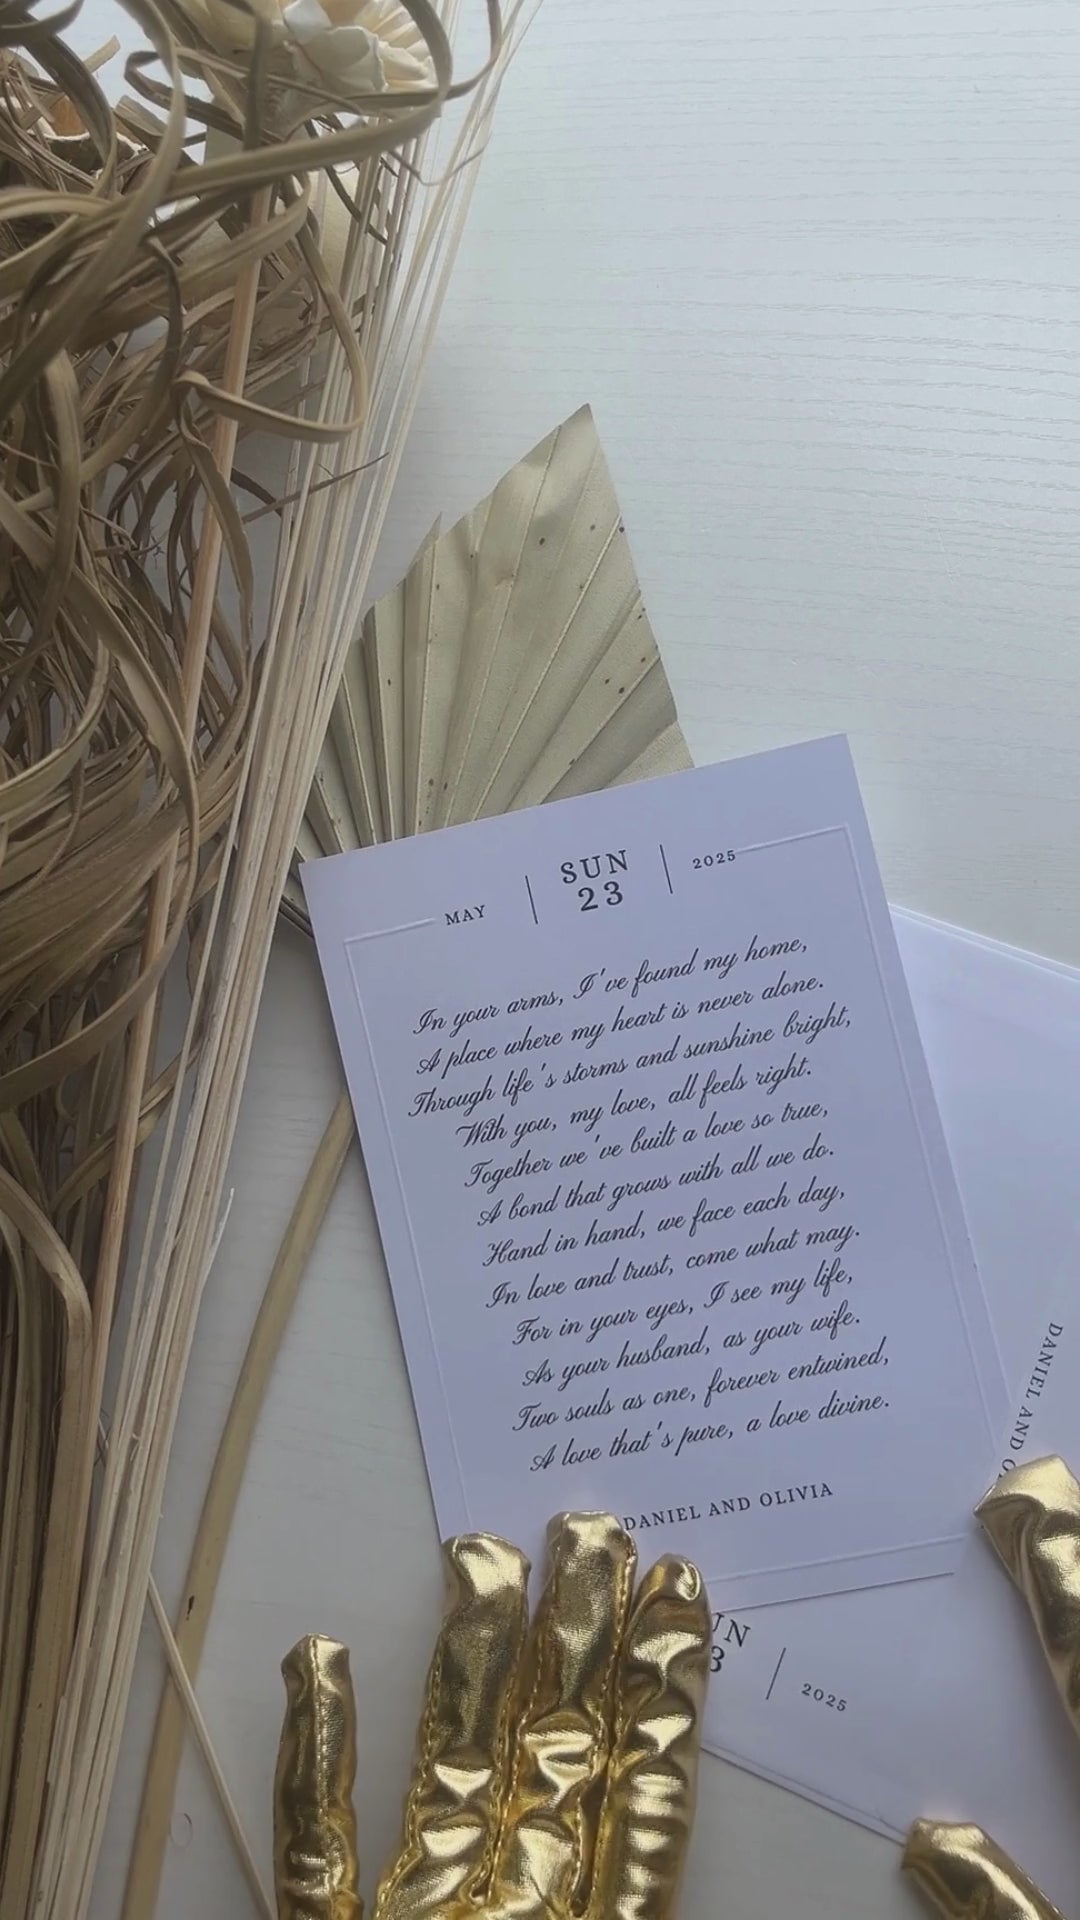 MAY | SUN 23 | 2025
In your arms, I've found my home,
A place where my heart is never alone.
Through life's storms and sunshine bright,
With you, my love, all feels right.
Together we've built a love so true,
A bond that grows with all we do.
Hand in hand, we face each day,
In love and trust, come what may.
For in your eyes, I see my life,
As your husband, as your wife.
Two souls as one, forever entwined,
A love that's pure, a love divine.
DANIEL AND OLIVIA
DANIEL AND
2025